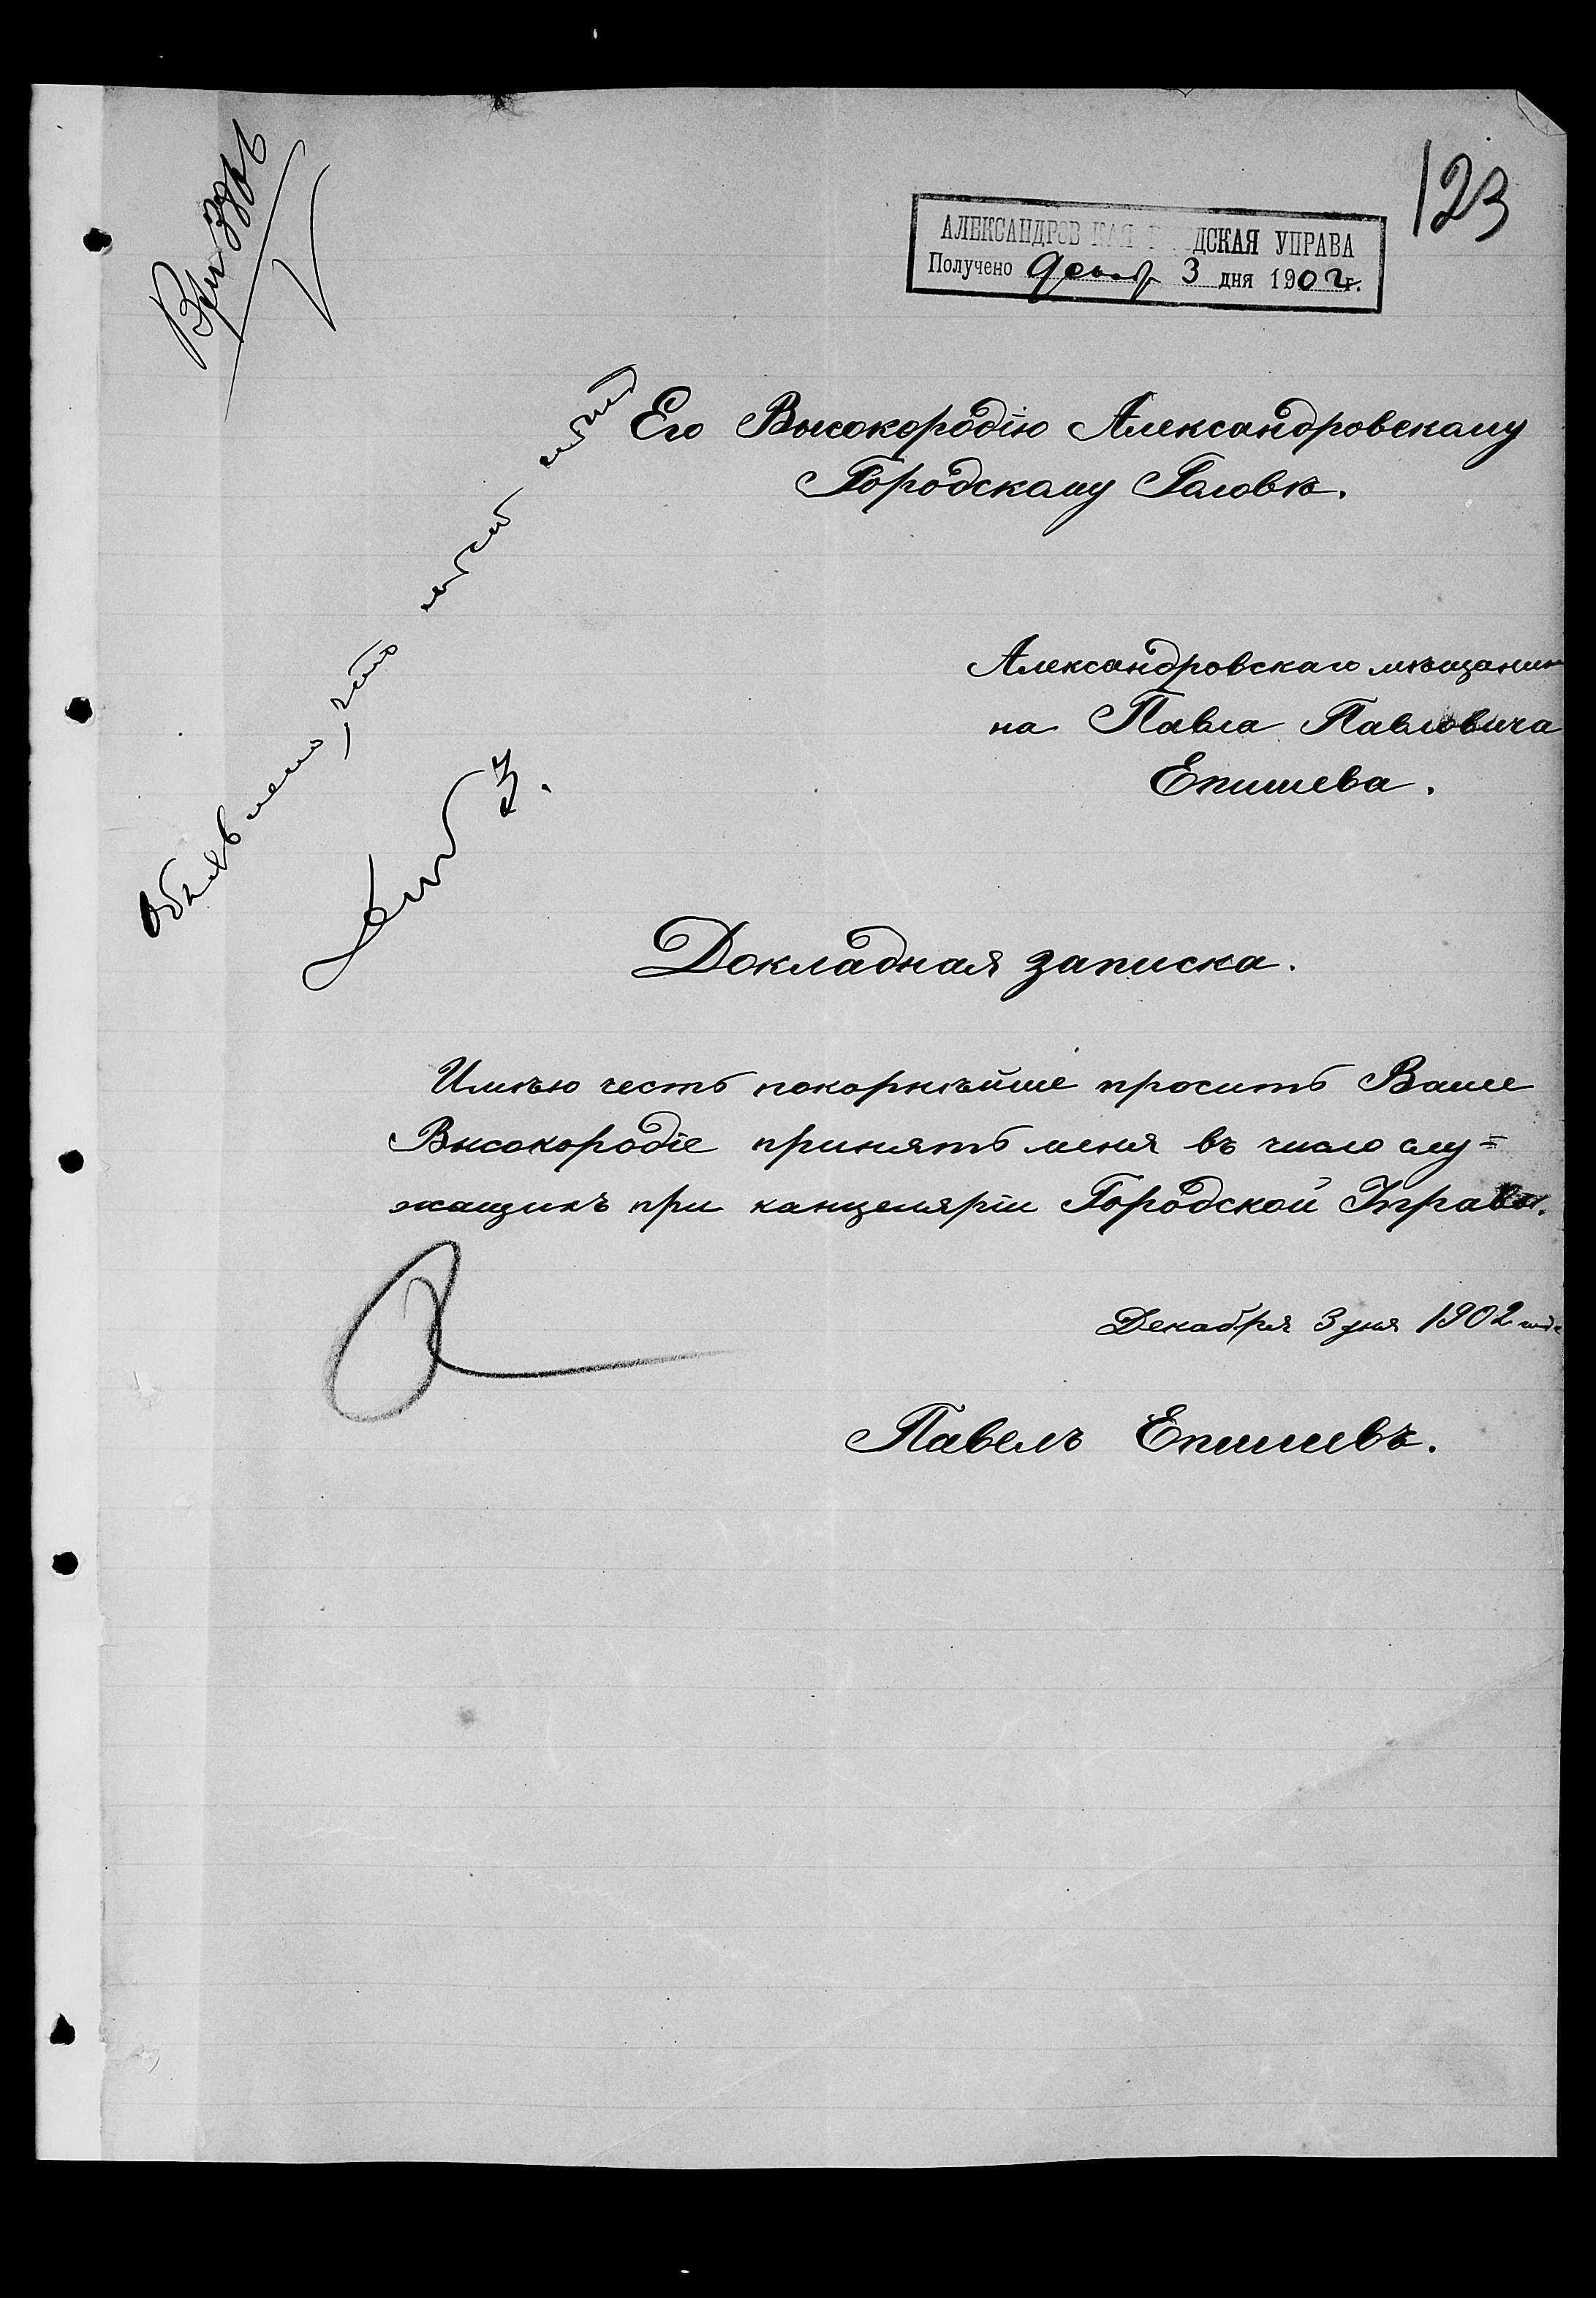 123
АЛЕКСАНДРОВ КАЯ Г ДСКАЯ УПРАВА
Получено декаб 3 дня 1902 г.
Его Высокородію Александровскому
Городскому Головѣ.
Александровскаго мѣщани
на Павла Павловича
Епишева.
Объявлено, что
Докладная записка.
Имѣю честь покорнѣйше просить Ваше
Высокородіе принять меня въ число слу=
жащихъ при канцеляріи Городской Управы.
Декабря 3 дня 1902 года
Павелъ Епишевъ.